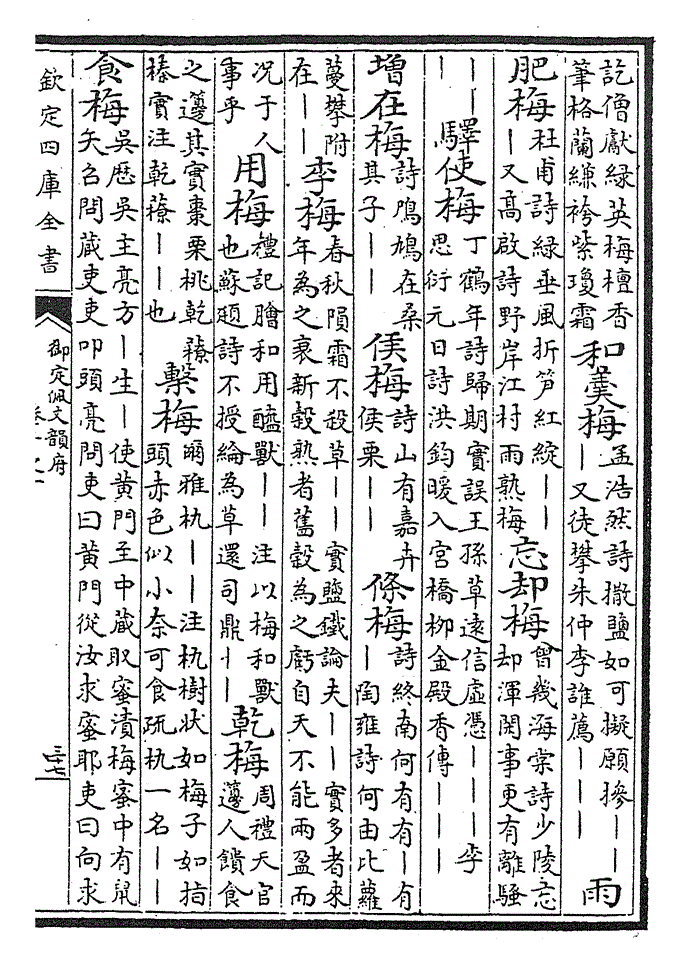 訖僧獻綠英梅檀香筆格蘭縑袴紫瓊霜 和羹梅 孟浩然詩撒鹽如可擬願摻丨丨丨又徒攀朱仲李誰薦丨丨丨 雨
肥梅 杜甫詩綠垂風折笋紅綻丨丨丨又高啟詩野岸江村雨熟梅 忘却梅 曾幾海棠詩少陵忘却渾閑事更有離騷
丨丨丨 驛使梅 丁鶴年詩歸期實誤王孫草遠信虛憑丨丨丨李思衍元日詩洪鈞暖入宮橋柳金殿香傳丨丨丨
增在梅 詩鳲鳩在桑其子丨丨 侯梅 詩山有嘉卉侯栗丨丨 條梅 詩終南何有有丨有丨陶雍詩何由比蘿
蔓攀附在丨丨 李梅 春秋隕霜不殺草丨丨實鹽鐵論夫丨丨實多者來年為之衰新穀熟者舊穀為之虧自天不能兩盈而
况于人事乎 用梅 禮記膾和用醯獸丨丨注以梅和獸也蘇頲詩不授綸為草還司鼎丨丨 乾梅 周禮天官籩人饋食
之籩其實棗栗桃乾䕩榛實注乾䕩丨丨也 繫梅 爾雅朹丨丨注朹樹状如梅子如指頭赤色似小柰可食疏朹一名丨丨
食梅 吳歷吳主亮方丨生丨使黄門至中藏取蜜漬梅蜜中有鼠矢召問藏吏吏叩頭亮問吏曰黄門從汝求蜜耶吏曰向求
欽定四庫全書
御定佩文韻府
卷十之一
三十七